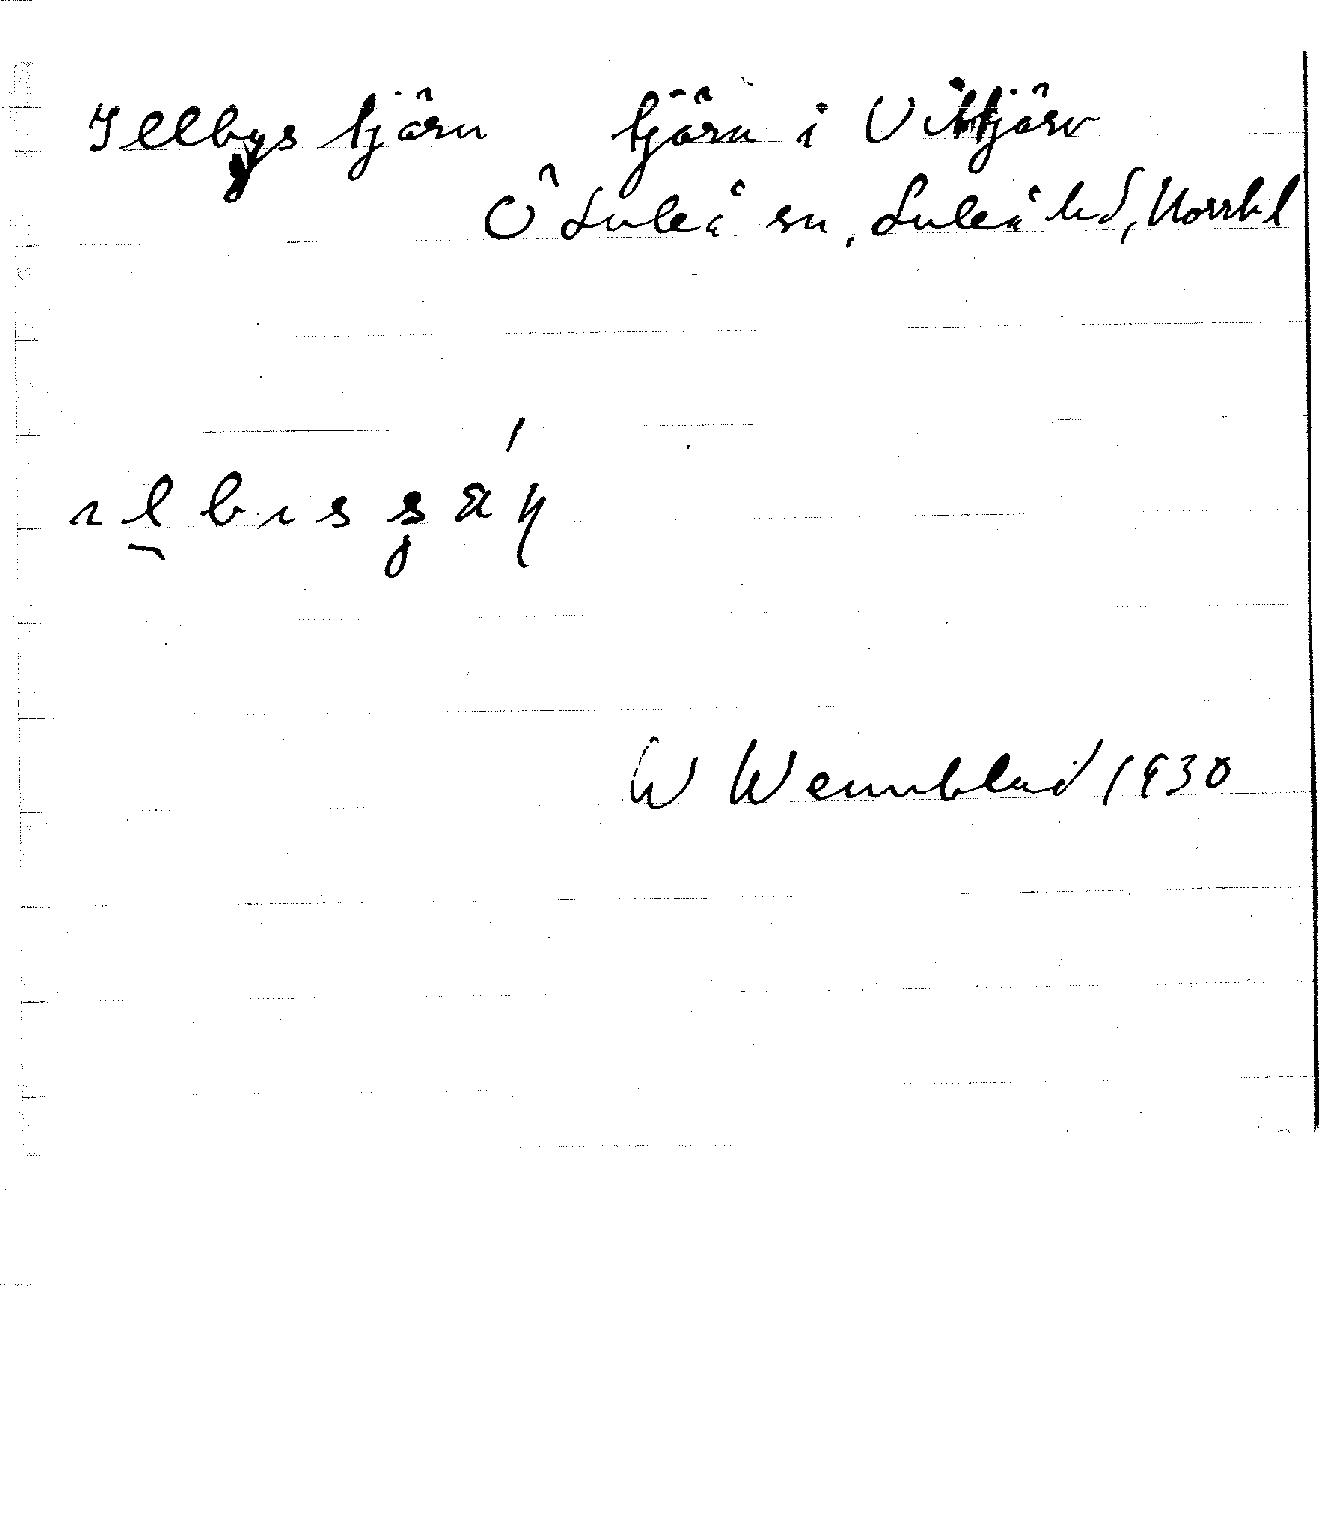 Illbystjärn tjärn i Vittjärv
Ö Luleå sn, Luleå hd, Norrb l
W Wennblad 1930